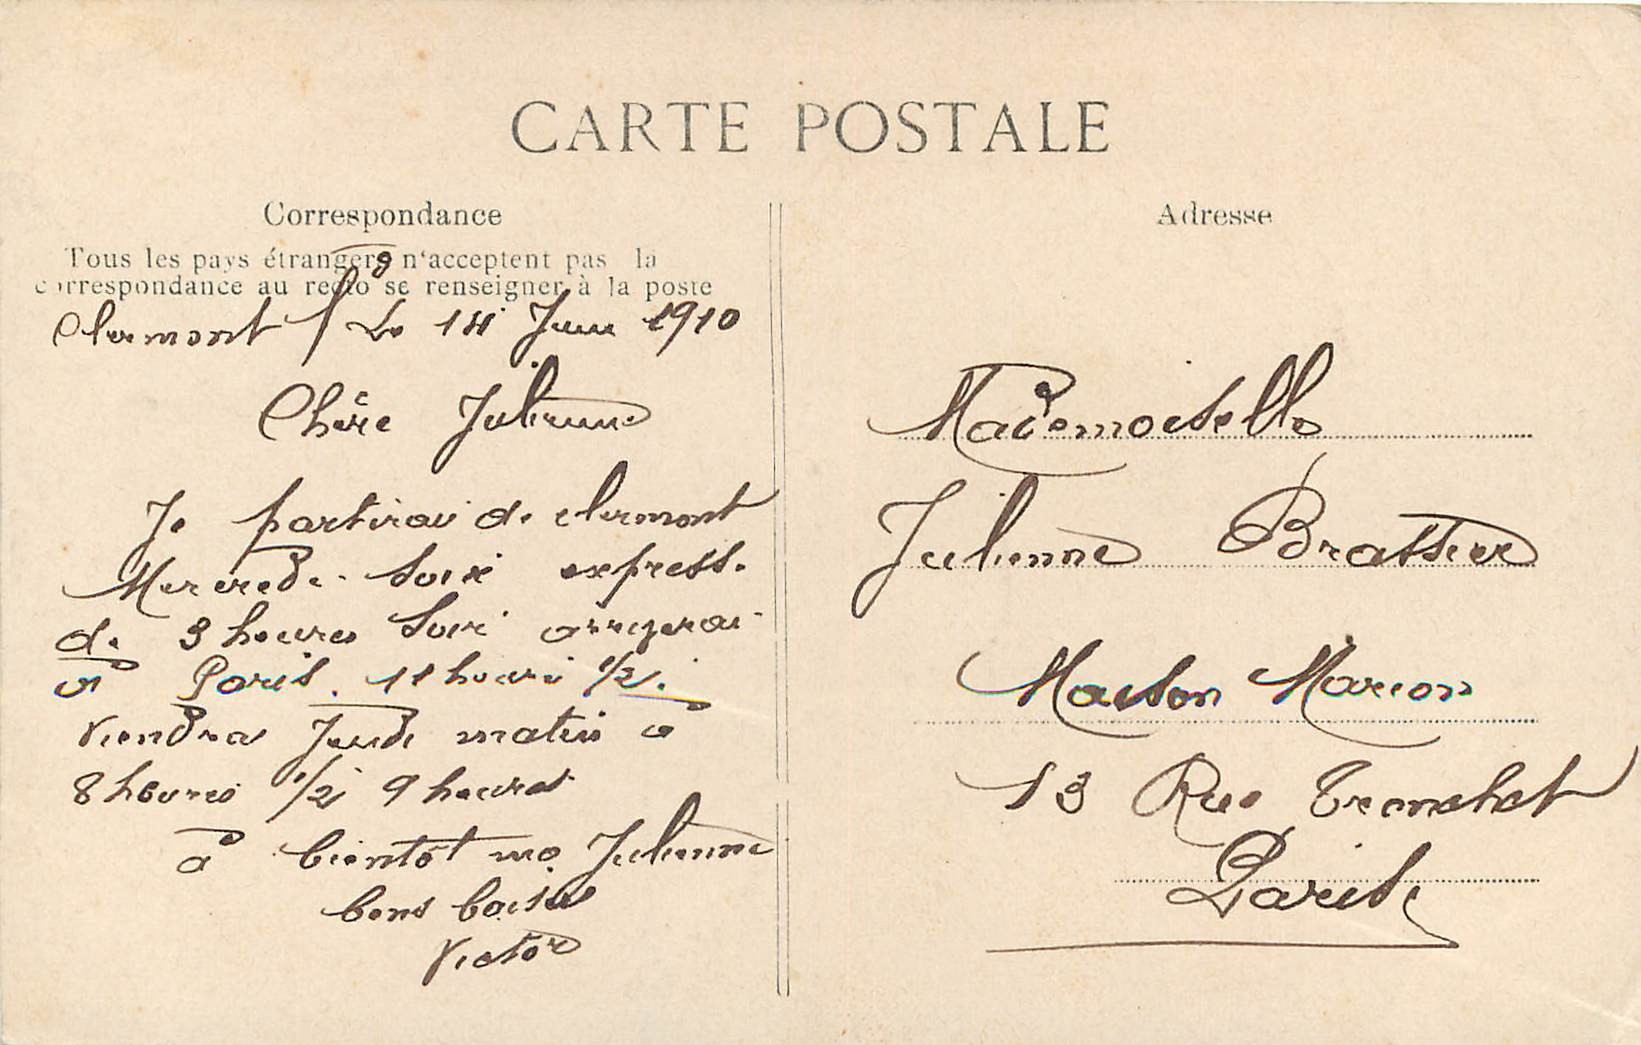 CARTE POSTALE
Correspondance
Tous les pays étrangers n'acceptent pas la
correspondance au recto se renseigner à la poste
Clermont / Le 14 Juin 1910
Chère Julienne
Je partirai de clermont
Mercredi soir express.
de 3 heures soir arriverai
à Paris. 11 heures 1/2.
viendra Jeudi matin à
8 heures 1/2 9 heures
à bientôt ma Julienne
bons baiser
Victor
Adresse
Mademoiselle
Julienne Brassier
Maison Marion
13 Rue Tronchet
Paris